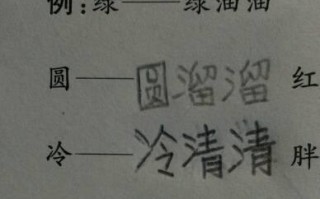 例:绿——绿油油
圆——圆溜溜 红
冷——冷清清 胖